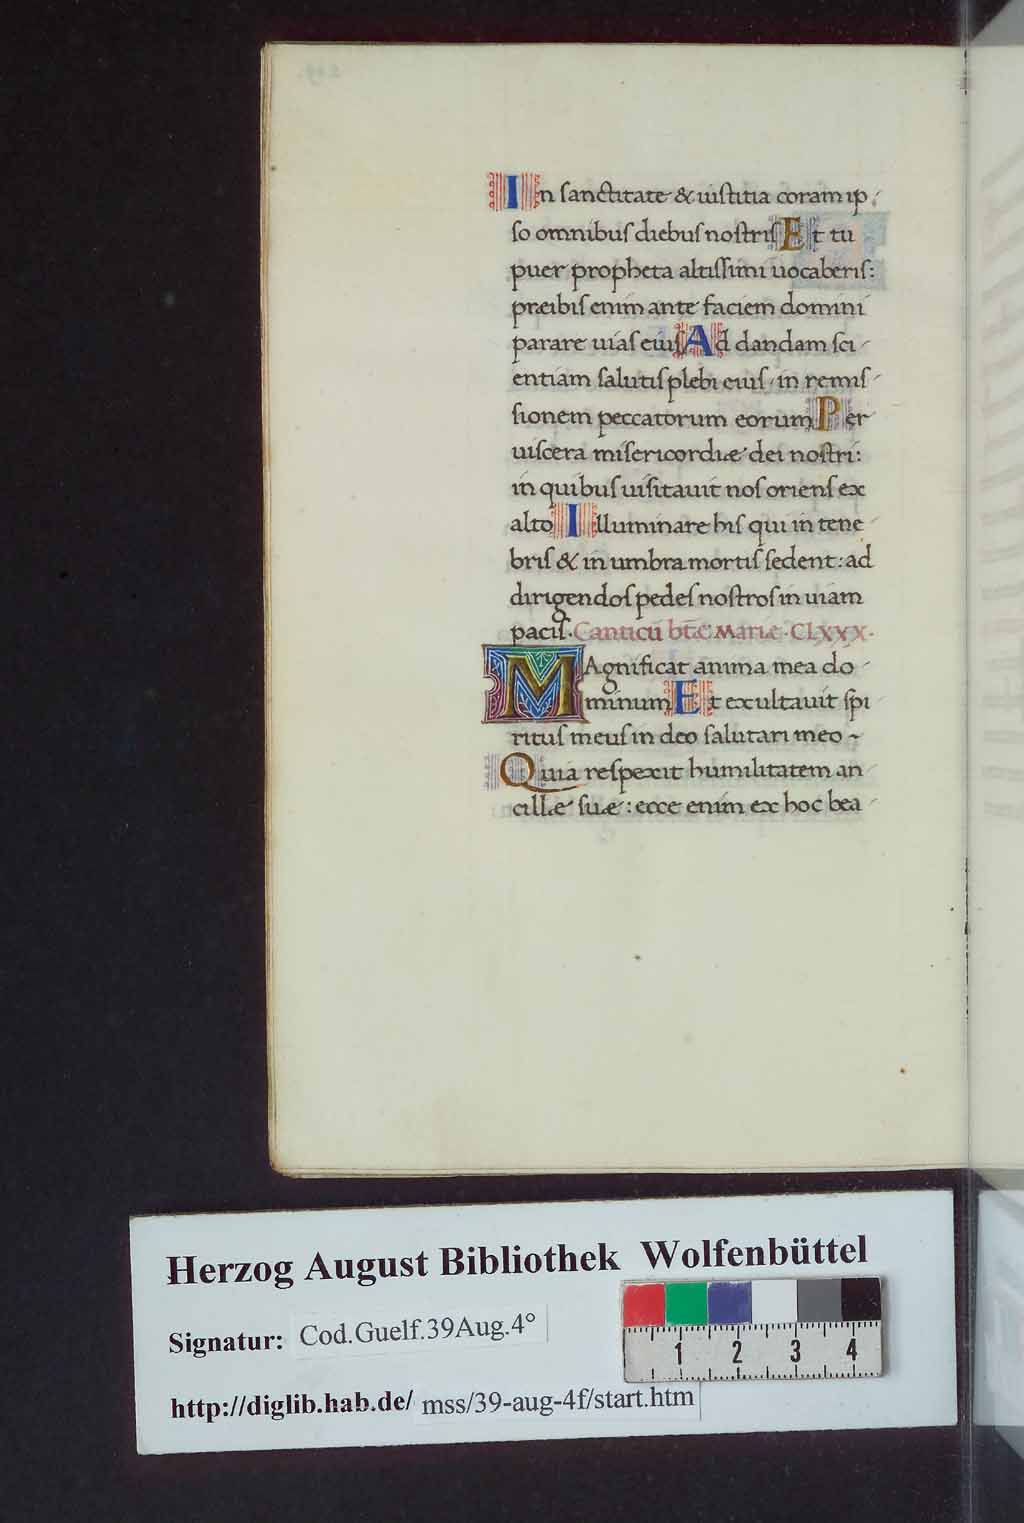 In sanctitate & iustitia coram ip
so omnibus diebus nostris Et tu
puer propheta altissimi uocaberis:
præibis enim ante faciem domini
parare uias eius Ad dandam sci
entiam salutis plebi eius · in remis
sionem peccatorum eorum Per
uiscera misericordiæ dei nostri:
in quibus uisitauit nos oriens ex
alto Illuminare his qui in tene
bris & in umbra mortis sedent: ad
dirigendos pedes nostros in uiam
pacis. Canticū btē Mariæ · CLXXX ·
MAgnificat anima mea do
minum Et exultauit spi
ritus meus in deo salutari meo ~
Quia respexit humilitatem an
cillæ suæ: ecce enim ex hoc bea
Herzog August Bibliothek Wolfenbüttel
Signatur: Cod.Guelf.39Aug.4°
http://diglib.hab.de/ mss/39-aug-4f/start.htm
1 2 3 4